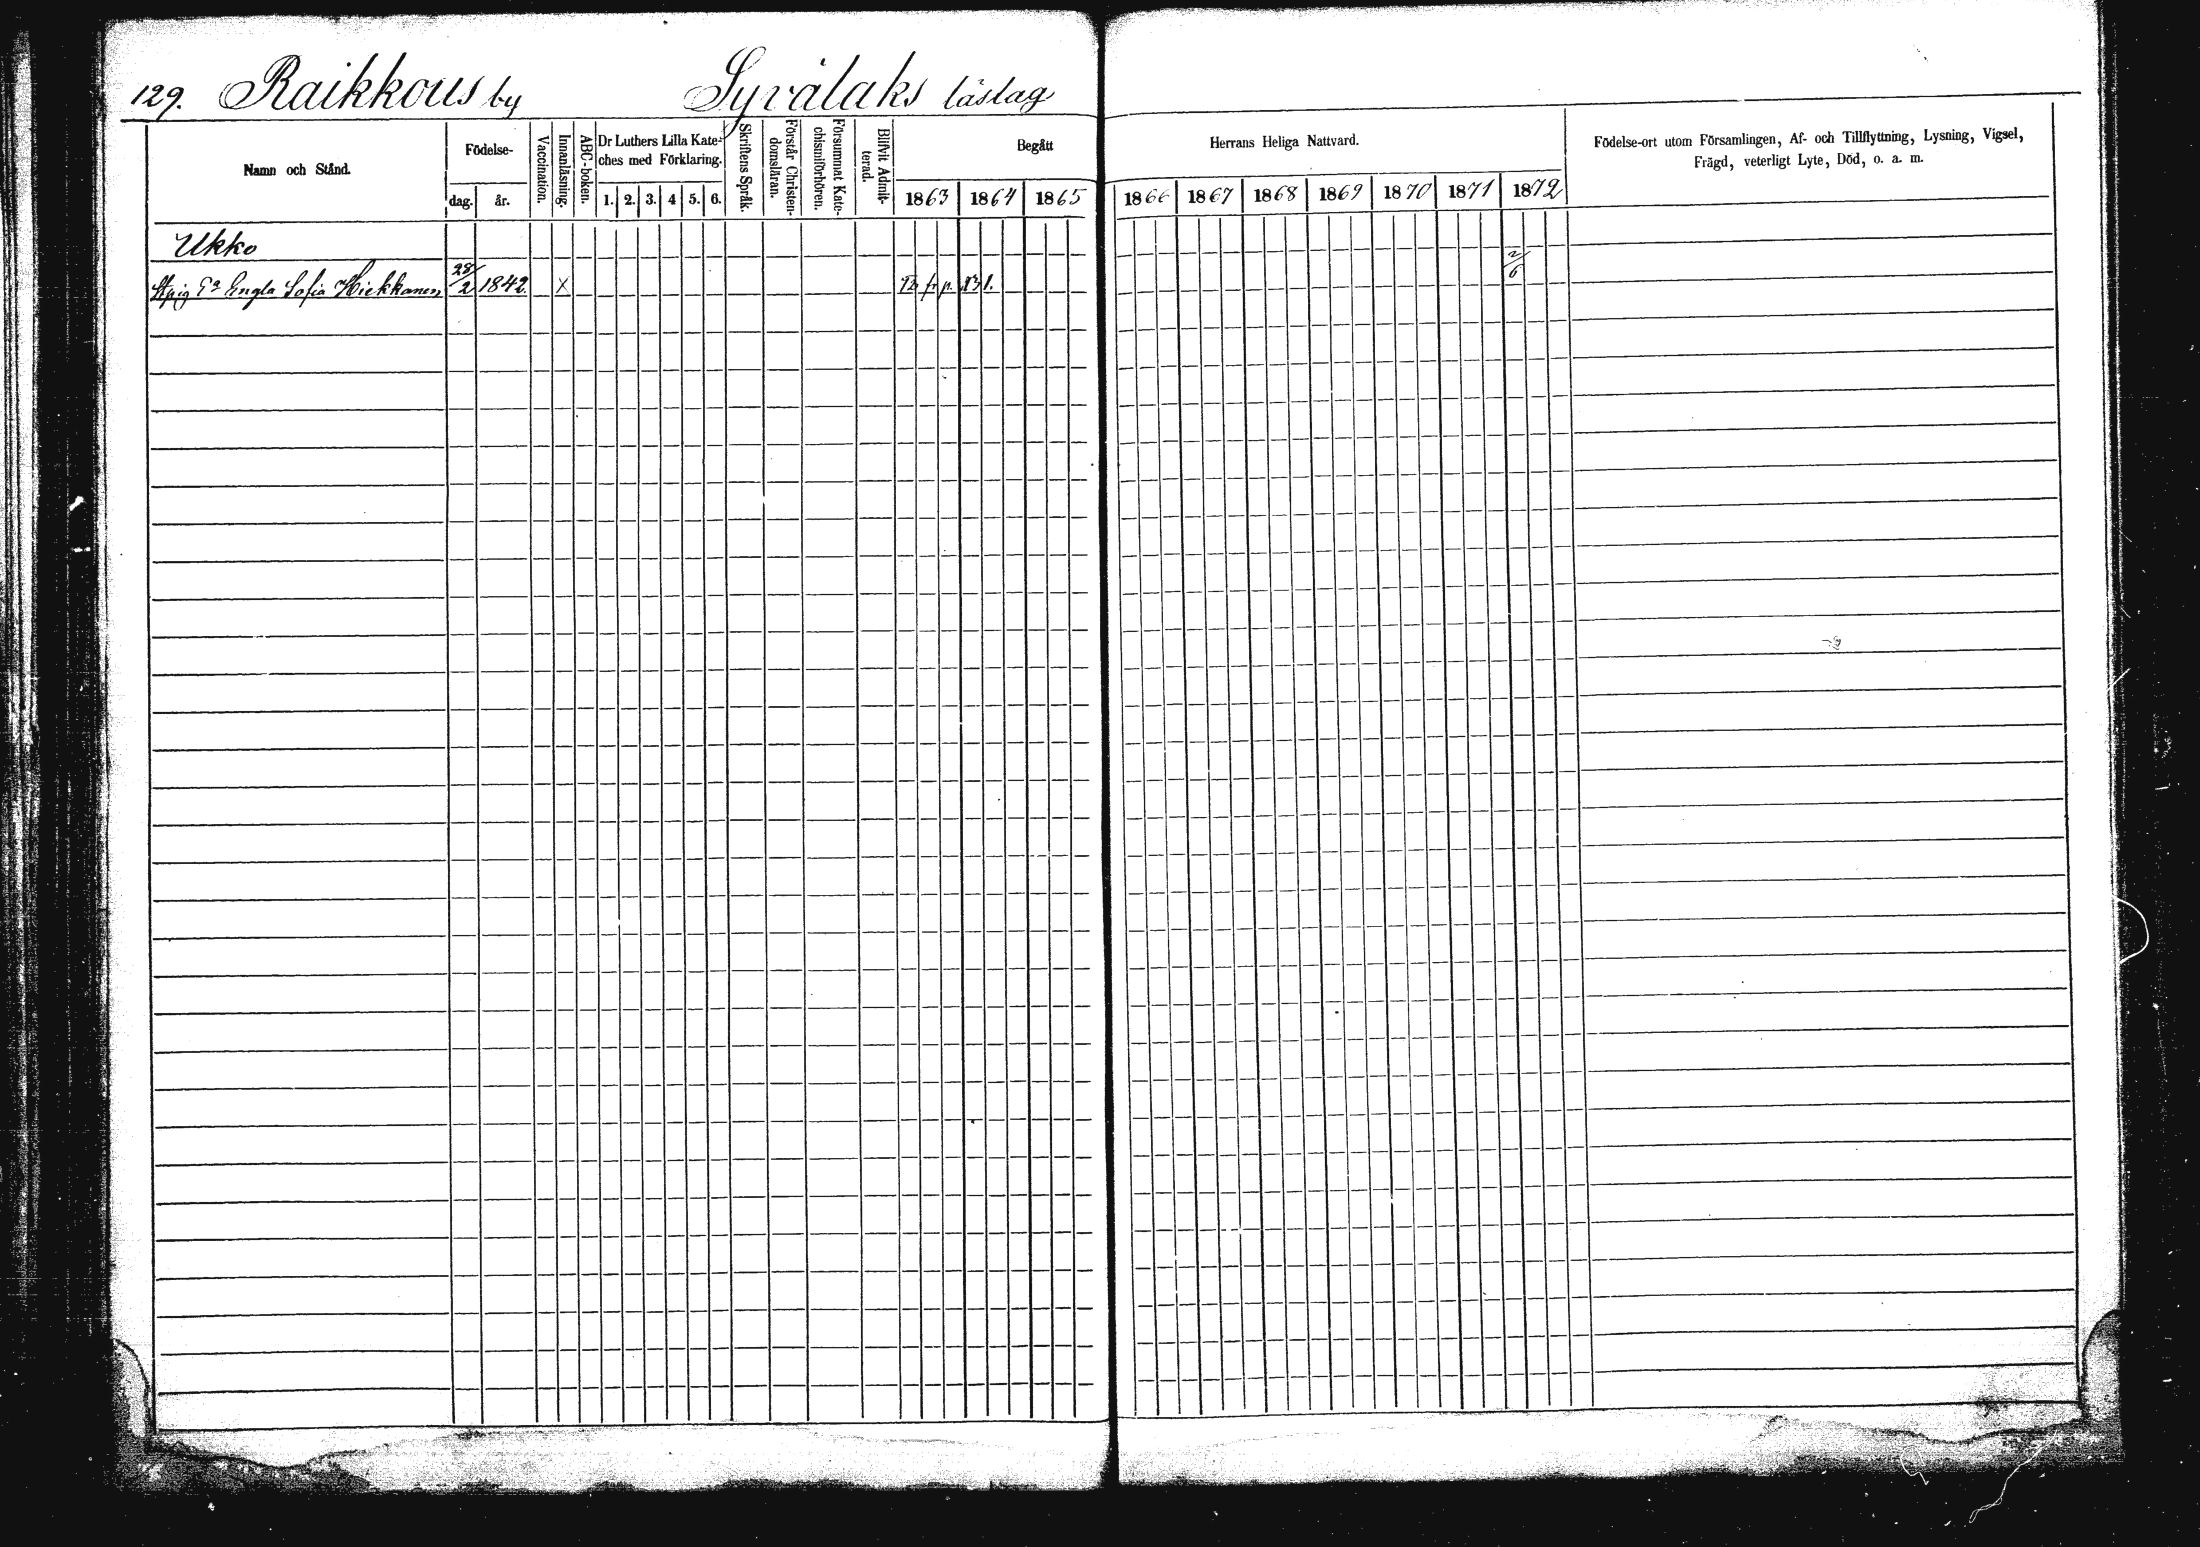 129. Raikkous by Syvälaks läslag
Namn och Stånd.
Födelse-
dag.
år.
Vaccination.
Innanläsning.
ABC-boken.
Dr Luthers Lilla Kate-
ches med Förklaring.
1. 2. 3. 4 5. 6.
Skriftens Språk.
Förstår Christen-
domsläran.
Försummat Kate-
chismiförhören.
Blifvit Admit-
terad.
Begått
1863 1864 1865
Herrans Heliga Nattvard.
1866 1867 1868 1869 1870 1871 1872
Födelse-ort utom Församlingen, Af- och Tillflyttning, Lysning, Vigsel,
Frägd, veterligt Lyte, Död, o. a. m.
Ukko
Engla Sofia Hiekkanen 28/2 1842. X fr p. 131. 2/6